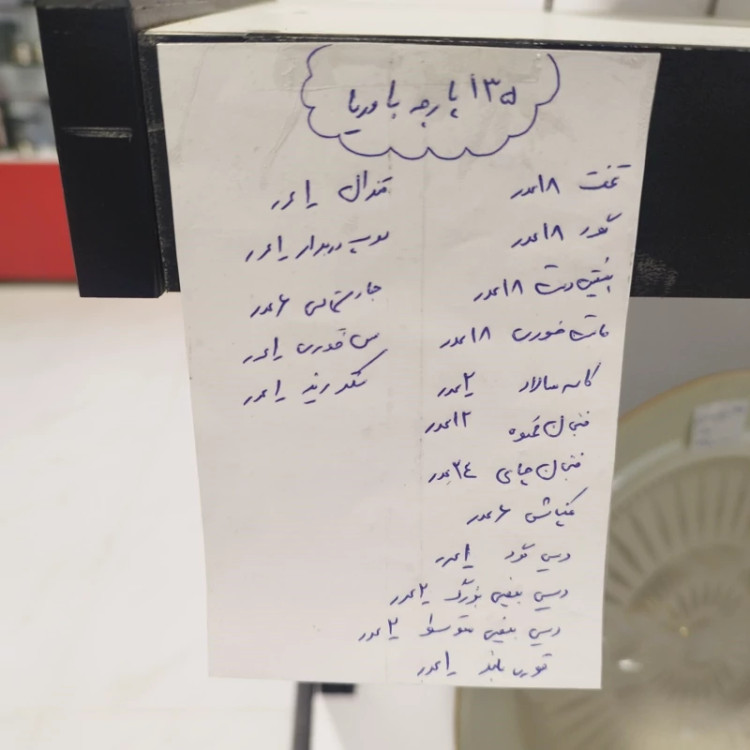 ۱۳۵ پارچه باواریا
تخت ۱۸ عدد
گود ۱۸ عدد
پیش دست ۱۸ عدد
ماست خوری ۱۸ عدد
کاسه سالاد ۲ عدد
فنجان قهوه ۱۲ عدد
فنجان چای ۲۴ عدد
۶ عدد
دیس گود ۱ عدد
دیس بیضی بزرگ ۲ عدد
دیس بیضی متوسط ۲ عدد
قوری بلند ۱ عدد
قندان ۱ عدد
سوپ دربدار ۱ عدد
۶ عدد
سس خوری ۱ عدد
شکرریز ۱ عدد